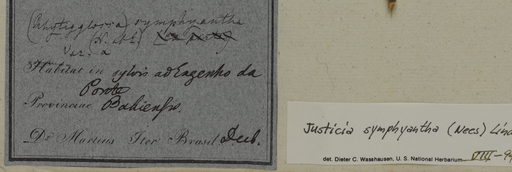 symphyantha
(N. ab E.)
Var. a
Habitat in sylvis ad Engenho da
Ponte
Provinciae Bahiensis.
De Martius Iter Brasil Decb.
Justicia symphyantha (Nees) Lind
det. Dieter C. Wasshausen, U. S. National Herbarium VIII-99